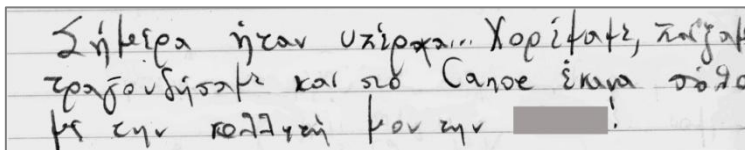 Σήμερα ήταν υπέροχα... Χορέψαμε, παίξαμ
τραγουδήσαμε και στο Canoe έκανα σόλο
με την κολλητή μου την !